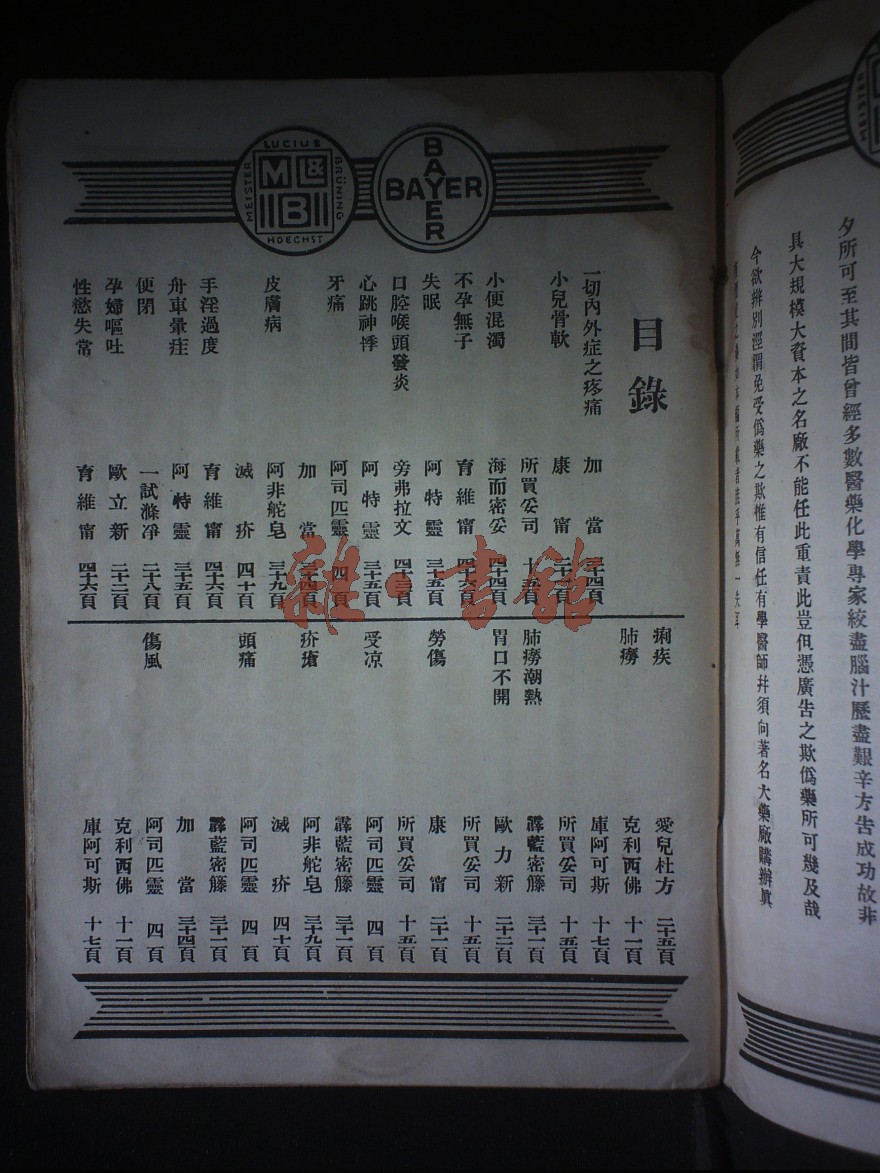 夕所可至其間皆曾經多數醫藥化學專家絞盡腦汁歷盡艱辛方告成功故非
具大規模大資本之名廠不能任此重責此豈但憑廣告之欺僞藥所可幾及哉
今欲辨別涇渭免受僞藥之欺惟有信任有學醫師幷須向著名大藥廠購辦眞
MEISTER
MEISTER LUCIUS BRÜNING
ML&B
HOECHST
BAYER
BAYER
目錄
一切內外症之疼痛 加當 三十四頁
小兒骨軟 康甯 二十一頁
所買妥司 十五頁
小便混濁 海而密妥 四十四頁
不孕無子 育維甯 四十六頁
失眠 阿特靈 三十五頁
口腔喉頭發炎 旁弗拉文 四十三頁
心跳神悸 阿特靈 三十五頁
牙痛 阿司匹靈 四頁
加當 三十四頁
皮膚病 阿非舵皂 三十九頁
滅疥 四十頁
手淫過度 育維甯 四十六頁
舟車暈疰 阿特靈 三十五頁
便閉 一試滌凈 二十八頁
孕婦嘔吐 歐立新 二十二頁
性慾失常 育維甯 四十六頁
痢疾 愛兒杜方 二十五頁
肺癆 克利西佛 十一頁
庫阿可斯 十七頁
所買妥司 十五頁
肺癆潮熱 霹藍密籐 三十一頁
胃口不開 歐力新 二十二頁
所買妥司 十五頁
勞傷 康甯 二十一頁
所買妥司 十五頁
受凉 阿司匹靈 四頁
霹藍密籐 三十一頁
疥瘡 阿非舵皂 三十九頁
滅疥 四十頁
頭痛 阿司匹靈 四頁
霹藍密籐 三十一頁
加當 三十四頁
傷風 阿司匹靈 四頁
克利西佛 十一頁
庫阿可斯 十七頁
雜·書館